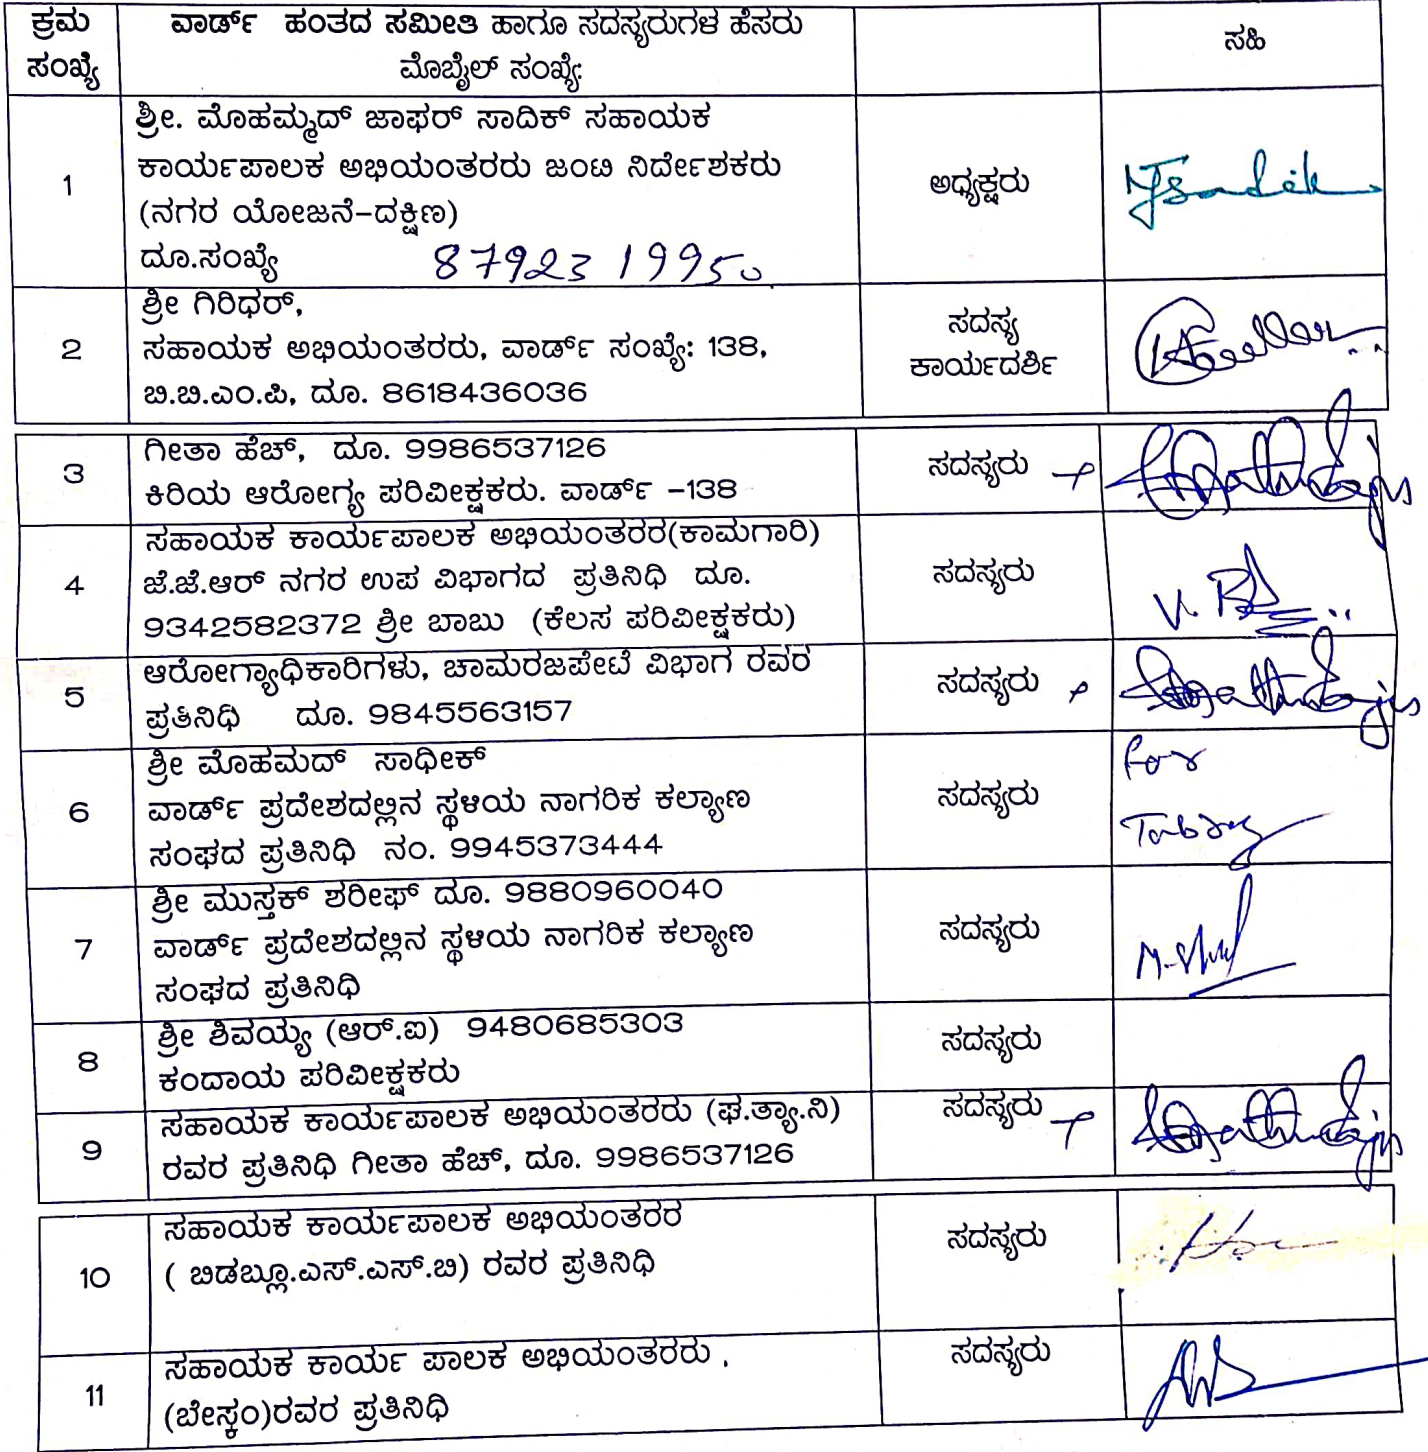 ಕ್ರಮ ಸಂಖ್ಯೆ
ವಾರ್ಡ್ ಹಂತದ ಸಮೀತಿ ಹಾಗೂ ಸದಸ್ಯರುಗಳ ಹೆಸರು
ಮೊಬೈಲ್ ಸಂಖ್ಯೆ
ಸಹಿ
1
ಶ್ರೀ. ಮೊಹಮ್ಮದ್ ಜಾಫರ್ ಸಾದಿಕ್ ಸಹಾಯಕ
ಕಾರ್ಯಪಾಲಕ ಅಭಿಯಂತರರು ಜಂಟಿ ನಿರ್ದೇಶಕರು
(ನಗರ ಯೋಜನೆ-ದಕ್ಷಿಣ)
ದೂ.ಸಂಖ್ಯೆ 87923 19950
ಅಧ್ಯಕ್ಷರು
2
ಶ್ರೀ ಗಿರಿಧರ್,
ಸಹಾಯಕ ಅಭಿಯಂತರರು, ವಾರ್ಡ್ ಸಂಖ್ಯೆ: 138,
ಬಿ.ಬಿ.ಎಂ.ಪಿ, ದೂ. 8618436036
ಸದಸ್ಯ
ಕಾರ್ಯದರ್ಶಿ
3
ಗೀತಾ ಹೆಚ್, ದೂ. 9986537126
ಕಿರಿಯ ಆರೋಗ್ಯ ಪರಿವೀಕ್ಷಕರು. ವಾರ್ಡ್ -138
ಸದಸ್ಯರು
4
ಸಹಾಯಕ ಕಾರ್ಯಪಾಲಕ ಅಭಿಯಂತರರ(ಕಾಮಗಾರಿ)
ಜೆ.ಜೆ.ಆರ್ ನಗರ ಉಪ ವಿಭಾಗದ ಪ್ರತಿನಿಧಿ ದೂ.
9342582372 ಶ್ರೀ ಬಾಬು (ಕೆಲಸ ಪರಿವೀಕ್ಷಕರು)
ಸದಸ್ಯರು
5
ಆರೋಗ್ಯಾಧಿಕಾರಿಗಳು, ಚಾಮರಜಪೇಟೆ ವಿಭಾಗ ರವರ
ಪ್ರತಿನಿಧಿ ದೂ. 9845563157
ಸದಸ್ಯರು
6
ಶ್ರೀ ಮೊಹಮದ್ ಸಾಧೀಕ್
ವಾರ್ಡ್ ಪ್ರದೇಶದಲ್ಲಿನ ಸ್ಥಳಿಯ ನಾಗರಿಕ ಕಲ್ಯಾಣ
ಸಂಘದ ಪ್ರತಿನಿಧಿ ನಂ. 9945373444
ಸದಸ್ಯರು
For
7
ಶ್ರೀ ಮುಸ್ತಕ್ ಶರೀಫ್ ದೂ. 9880960040
ವಾರ್ಡ್ ಪ್ರದೇಶದಲ್ಲಿನ ಸ್ಥಳಿಯ ನಾಗರಿಕ ಕಲ್ಯಾಣ
ಸಂಘದ ಪ್ರತಿನಿಧಿ
ಸದಸ್ಯರು
8
ಶ್ರೀ ಶಿವಯ್ಯ (ಆರ್.ಐ) 9480685303
ಕಂದಾಯ ಪರಿವೀಕ್ಷಕರು
ಸದಸ್ಯರು
9
ಸಹಾಯಕ ಕಾರ್ಯಪಾಲಕ ಅಭಿಯಂತರರು (ಘ.ತ್ಯಾ.ನಿ)
ರವರ ಪ್ರತಿನಿಧಿ ಗೀತಾ ಹೆಚ್, ದೂ. 9986537126
ಸದಸ್ಯರು
10
ಸಹಾಯಕ ಕಾರ್ಯಪಾಲಕ ಅಭಿಯಂತರರ
( ಬಿಡಬ್ಲೂ.ಎಸ್.ಎಸ್.ಬಿ) ರವರ ಪ್ರತಿನಿಧಿ
ಸದಸ್ಯರು
11
ಸಹಾಯಕ ಕಾರ್ಯ ಪಾಲಕ ಅಭಿಯಂತರರು ,
(ಬೇಸ್ಕಂ)ರವರ ಪ್ರತಿನಿಧಿ
ಸದಸ್ಯರು